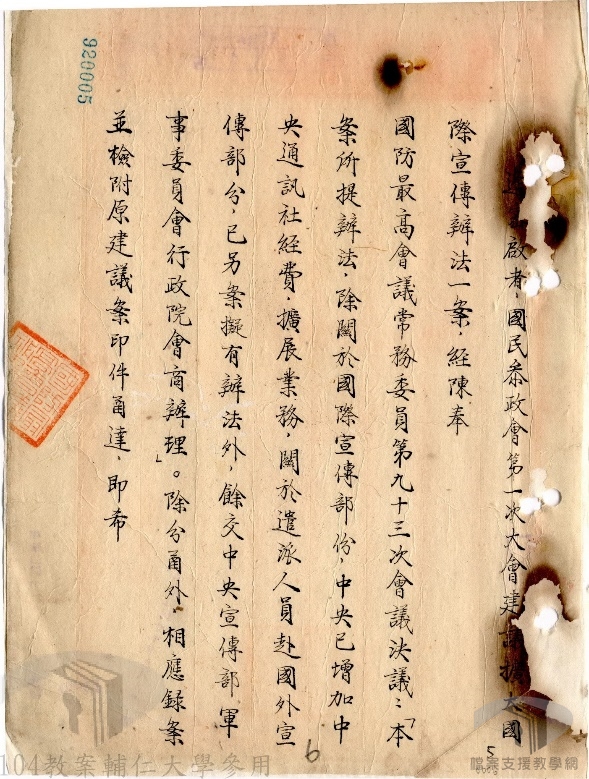 啟者,國民參政會第一次大會建議擴大國
際宣傳辦法一案,經陳奉
國防最高會議常務委員第九十三次會議決議:「本
案所提辦法,除關於國際宣傳部份,中央已增加中
央通訊社經費,擴展業務,關於遣派人員赴國外宣
傳部分,已另案擬有辦法外,餘交中央宣傳部、軍
事委員會行政院會商辦理」。除分函外,相應錄案
並檢附原建議案印件函達,即希
920005
6
5
104教案輔仁大學參用
檔案支援教學網